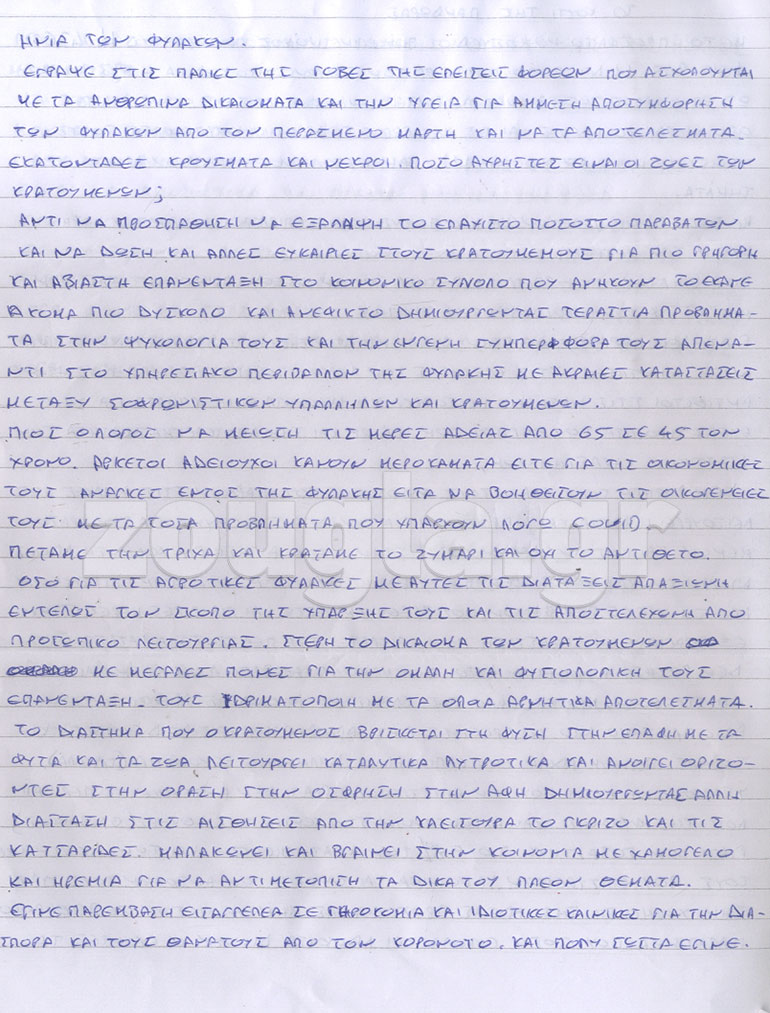 ΗΝΙΑ ΤΩΝ ΦΥΛΑΚΩΝ.
ΕΓΡΑΨΕ ΣΤΙΣ ΠΑΛΙΕΣ ΤΗΣ ΓΟΒΕΣ ΤΗΣ ΕΠΕΙΣΕΙΣ ΦΟΡΕΩΝ ΠΟΥ ΑΣΧΟΛΟΥΝΤΑΙ
ΜΕ ΤΑ ΑΝΘΡΩΠΙΝΑ ΔΙΚΑΙΟΜΑΤΑ ΚΑΙ ΤΗΝ ΥΓΕΙΑ ΓΙΑ ΑΜΜΕΣΗ ΑΠΟΣΥΜΦΟΡΗΣΗ
ΤΩΝ ΦΥΛΑΚΩΝ ΑΠΟ ΤΟΝ ΠΕΡΑΣΜΕΝΟ ΜΑΡΤΗ ΚΑΙ ΝΑ ΤΑ ΑΠΟΤΕΛΕΣΜΑΤΑ.
ΕΚΑΤΟΝΤΑΔΕΣ ΚΡΟΥΣΜΑΤΑ ΚΑΙ ΝΕΚΡΟΙ. ΠΟΣΟ ΑΧΡΗΣΤΕΣ ΕΙΝΑΙ ΟΙ ΖΩΕΣ ΤΩΝ
ΚΡΑΤΟΥΜΕΝΩΝ;
ΑΝΤΙ ΝΑ ΠΡΟΣΠΑΘΗΣΗ ΝΑ ΕΞΑΛΑΨΗ ΤΟ ΕΛΑΧΙΣΤΟ ΠΟΣΟΣΤΟ ΠΑΡΑΒΑΤΩΝ
ΚΑΙ ΝΑ ΔΩΣΗ ΚΑΙ ΑΛΛΕΣ ΕΥΚΑΙΡΙΕΣ ΣΤΟΥΣ ΚΡΑΤΟΥΜΕΝΟΥΣ ΓΙΑ ΠΙΟ ΓΡΗΓΟΡΗ
ΚΑΙ ΑΒΙΑΣΤΗ ΕΠΑΝΕΝΤΑΞΗ ΣΤΟ ΚΟΙΝΟΝΙΚΟ ΣΥΝΟΛΟ ΠΟΥ ΑΝΗΚΟΥΝ ΤΟ ΕΚΑΝΕ
ΑΚΟΜΑ ΠΙΟ ΔΥΣΚΟΛΟ ΚΑΙ ΑΝΕΦΙΚΤΟ ΔΗΜΙΟΥΡΓΩΝΤΑΣ ΤΕΡΑΣΤΙΑ ΠΡΟΒΛΗΜΑ-
ΤΑ ΣΤΗΝ ΨΥΧΟΛΟΓΙΑ ΤΟΥΣ ΚΑΙ ΤΗΝ ΕΝΓΕΝΗ ΣΥΜΠΕΡΦΦΟΡΑ ΤΟΥΣ ΑΠΕΝΑ-
ΝΤΙ ΣΤΟ ΥΠΗΡΕΣΙΑΚΟ ΠΕΡΙΒΑΛΛΟΝ ΤΗΣ ΦΥΛΑΚΗΣ ΜΕ ΑΚΡΑΙΕΣ ΚΑΤΑΣΤΑΣΕΙΣ
ΜΕΤΑΞΥ ΣΩΦΡΩΝΙΣΤΙΚΩΝ ΥΠΑΛΛΗΛΩΝ ΚΑΙ ΚΡΑΤΟΥΜΕΝΩΝ.
ΠΙΟΣ Ο ΛΟΓΟΣ ΝΑ ΜΕΙΩΣΗ ΤΙΣ ΜΕΡΕΣ ΑΔΕΙΑΣ ΑΠΟ 65 ΣΕ 45 ΤΟΝ
ΧΡΟΝΟ. ΑΡΚΕΤΟΙ ΑΔΕΙΟΥΧΟΙ ΚΑΝΟΥΝ ΜΕΡΟΚΑΜΑΤΑ ΕΙΤΕ ΓΙΑ ΤΙΣ ΟΙΚΟΝΟΜΙΚΕΣ
ΤΟΥΣ ΑΝΑΓΚΕΣ ΕΝΤΟΣ ΤΗΣ ΦΥΛΑΚΗΣ ΕΙΤΑ ΝΑ ΒΟΗΘΕΙΣΟΥΝ ΤΙΣ ΟΙΚΟΓΕΝΕΙΕΣ
ΤΟΥΣ ΜΕ ΤΑ ΤΟΣΑ ΠΡΟΒΛΗΜΑΤΑ ΠΟΥ ΥΠΑΡΧΟΥΝ ΛΟΓΟ COVID-
ΠΕΤΑΜΕ ΤΗΝ ΤΡΙΧΑ ΚΑΙ ΚΡΑΤΑΜΕ ΤΟ ΖΥΜΑΡΙ ΚΑΙ ΟΧΙ ΤΟ ΑΝΤΙΘΕΤΟ.
ΟΣΟ ΓΙΑ ΤΙΣ ΑΓΡΟΤΙΚΕΣ ΦΥΛΑΚΕΣ ΜΕ ΑΥΤΕΣ ΤΙΣ ΔΙΑΤΑΞΕΙΣ ΑΠΑΞΙΩΝΗ
ΕΝΤΕΛΩΣ ΤΟΝ ΣΚΟΠΟ ΤΗΣ ΥΠΑΡΞΗΣ ΤΟΥΣ ΚΑΙ ΤΙΣ ΑΠΟΣΤΕΛΕΧΩΝΗ ΑΠΟ
ΠΡΟΣΩΠΙΚΟ ΛΕΙΤΟΥΡΓΙΑΣ. ΣΤΕΡΗ ΤΟ ΔΙΚΑΙΟΜΑ ΤΩΝ ΚΡΑΤΟΥΜΕΝΩΝ
ΜΕ ΜΕΓΑΛΕΣ ΠΟΙΝΕΣ ΓΙΑ ΤΗΝ ΟΜΑΛΗ ΚΑΙ ΦΥΣΙΟΛΟΓΙΚΗ ΤΟΥΣ
ΕΠΑΝΕΝΤΑΞΗ. ΤΟΥΣ ΙΔΡΙΜΑΤΟΠΟΙΗ ΜΕ ΤΑ ΟΠΟΙΑ ΑΡΝΗΤΙΚΑ ΑΠΟΤΕΛΕΣΜΑΤΑ.
ΤΟ ΔΙΑΣΤΗΜΑ ΠΟΥ Ο ΚΡΑΤΟΥΜΕΝΟΣ ΒΡΙΣΚΕΤΑΙ ΣΤΗ ΦΥΣΗ ΣΤΗΝ ΕΠΑΦΗ ΜΕ ΤΑ
ΦΥΤΑ ΚΑΙ ΤΑ ΖΩΑ ΛΕΙΤΟΥΡΓΕΙ ΚΑΤΑΛΥΤΙΚΑ ΛΥΤΡΟΤΙΚΑ ΚΑΙ ΑΝΟΙΓΕΙ ΟΡΙΖΟ-
ΝΤΕΣ ΣΤΗΝ ΟΡΑΣΗ ΣΤΗΝ ΟΣΦΡΗΣΗ ΣΤΗΝ ΑΦΗ ΔΗΜΙΟΥΡΓΩΝΤΑΣ ΑΛΛΗ
ΔΙΑΣΤΑΣΗ ΣΤΙΣ ΑΙΣΘΗΣΕΙΣ ΑΠΟ ΤΗΝ ΚΛΕΙΣΟΥΡΑ ΤΟ ΓΚΡΙΖΟ ΚΑΙ ΤΙΣ
ΚΑΤΣΑΡΙΔΕΣ. ΜΑΛΑΚΩΝΕΙ ΚΑΙ ΒΓΑΙΝΕΙ ΣΤΗΝ ΚΟΙΝΟΝΙΑ ΜΕ ΧΑΜΟΓΕΛΟ
ΚΑΙ ΗΡΕΜΙΑ ΓΙΑ ΝΑ ΑΝΤΙΜΕΤΟΠΙΣΗ ΤΑ ΔΙΚΑ ΤΟΥ ΠΛΕΟΝ ΘΕΜΑΤΑ.
ΕΓΙΝΕ ΠΑΡΕΜΒΑΣΗ ΕΙΣΑΓΓΕΛΕΑ ΣΕ ΓΗΡΟΚΟΜΙΑ ΚΑΙ ΙΔΙΟΤΙΚΕΣ ΚΛΙΝΙΚΕΣ ΓΙΑ ΤΗΝ ΔΙΑ-
ΣΠΟΡΑ ΚΑΙ ΤΟΥΣ ΘΑΝΑΤΟΥΣ ΑΠΟ ΤΟΝ ΚΟΡΟΝΟΙΟ. ΚΑΙ ΠΟΛΥ ΣΩΣΤΑ ΕΓΙΝΕ.
zougla.gr